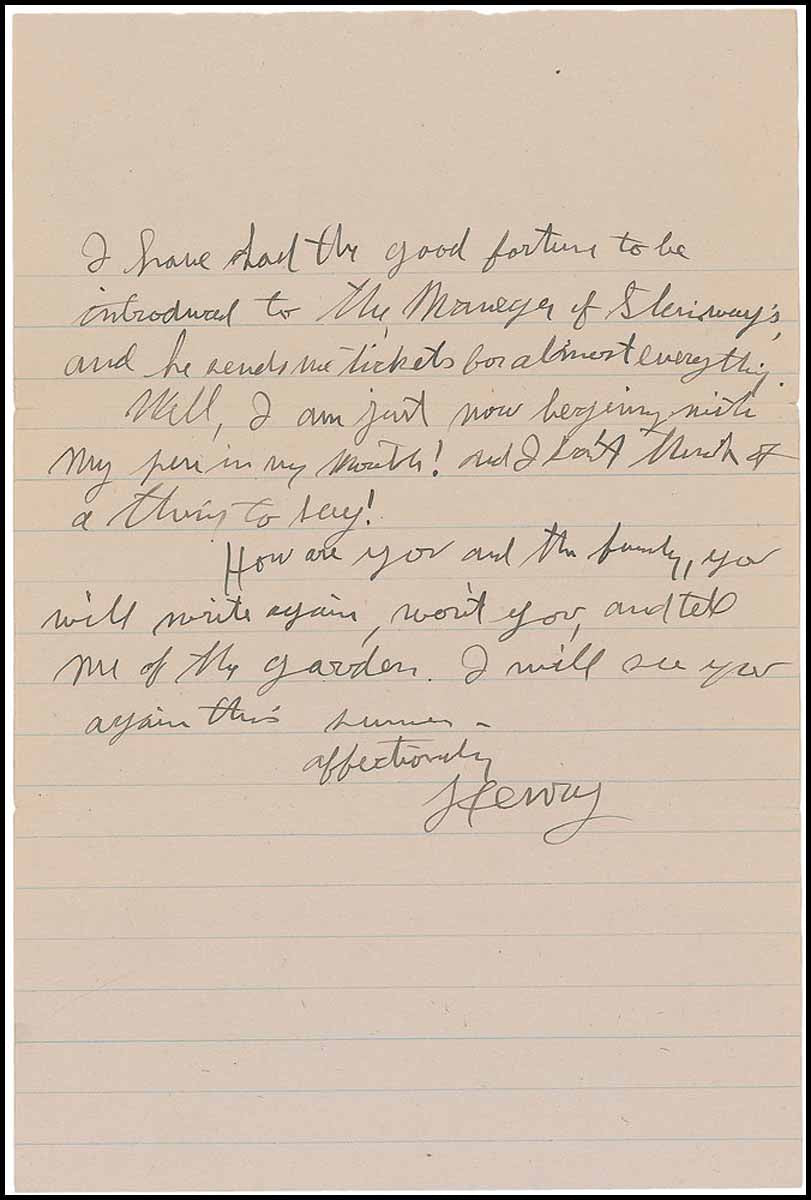 I have had the good fortune to be
introduced to the Manager of Steinway's,
and he sends me tickets for almost everything.
Well, I am just now begining with
my pen in my mouth! and I can't think of
a thing to say!
How are you and the family, you
will write again, won't you, and tell
me of the garden. I will see you
again this summer -
affectionately
Henry